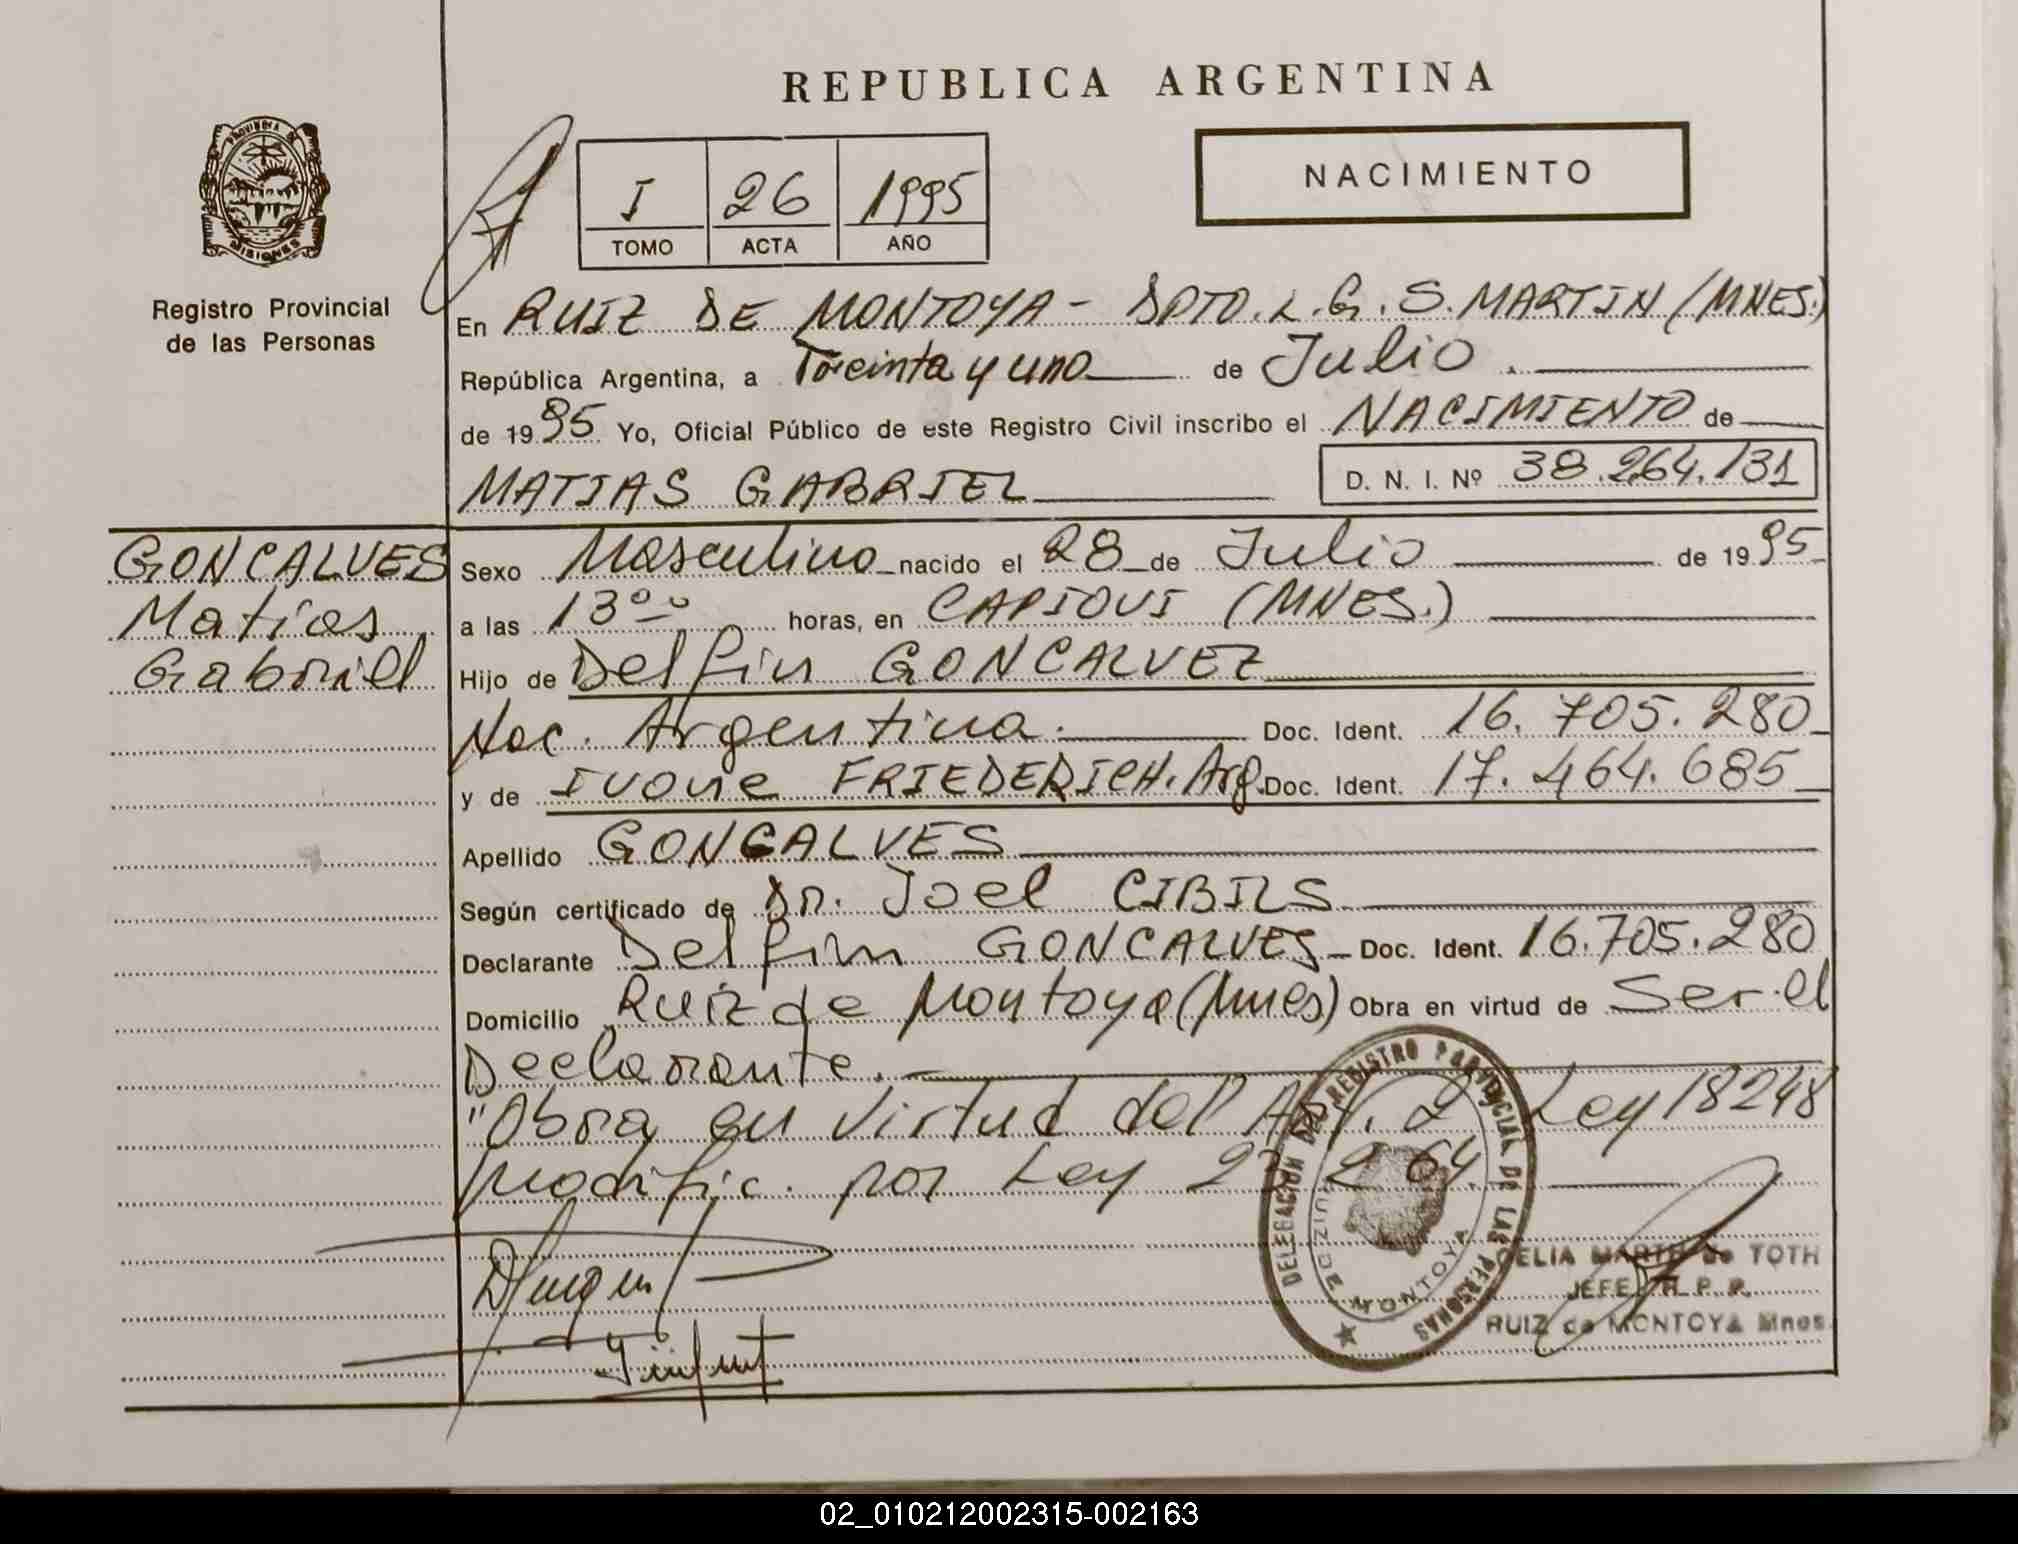 REPUBLICA ARGENTINA
PROVINCIA DE
MISIONES
Registro Provincial
de las Personas
I 26 1995
TOMO ACTA AÑO
NACIMIENTO
En RUIZ DE MONTOYA - DPTO. L. G. S. MARTIN (MNES.)
República Argentina, a Treinta y uno de Julio
de 1995 Yo, Oficial Público de este Registro Civil inscribo el NACIMIENTO de
MATIAS GABRIEL D. N. I. Nº 38.264.131
GONCALVES
Matias
Gabriel
Sexo Masculino nacido el 28 de Julio de 1995
a las 13°° horas, en CAPIOVI (MNES.)
Hijo de Delfin GONCALVEZ
Nac. Argentina. Doc. Ident. 16.705.280
y de IVONE FRIEDERICH. Arg. Doc. Ident. 17.464.685
Apellido GONCALVES
Según certificado de Dr. Joel CIBILS
Declarante Delfin GONCALVES Doc. Ident. 16.705.280
Domicilio Ruiz de Montoya (Mnes) Obra en virtud de Ser el
Declarante.
"Obra en virtud del Art. 2 Ley 18248
modific. por Ley 23.264.
DELEGACION DEL REGISTRO PROVINCIAL DE LAS PERSONAS
RUIZ DE MONTOYA
CELIA MARTA de TOTH
JEFE R. P. P.
RUIZ de MONTOYA Mnes.
02_010212002315-002163